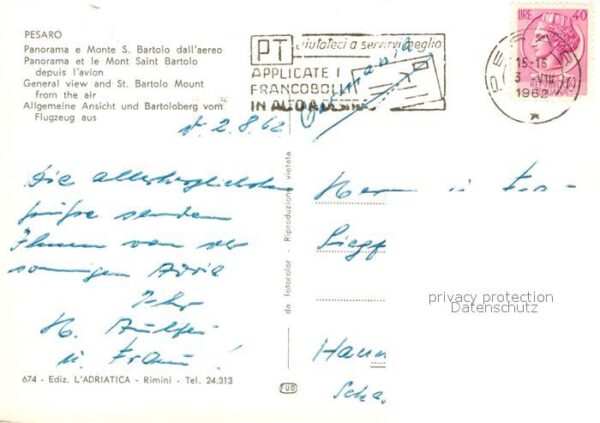 PESARO
Panorama e Monte S. Bartolo dall'aereo
Panorama et le Mont Saint Bartolo
depuis l'avion
General view and St. Bartolo Mount
from the air
Allgemeine Ansicht und Bartoloberg vom
Flugzeug aus
PT
aiutateci a servirvi meglio
APPLICATE I
FRANCOBOLLI
IN ALTO A
LIRE 40
15-15
3 VIII
1962
Germania
d. 2.8.62
Die allerherzlichsten
Grüße senden
Ihnen von der
sonnigen Adria
Ihr
H.
u. Frau!
Herrn u. Frau
Siegf
Hann
Scha
da fotocolor - Riproduzione vietata
674 - Ediz. L'ADRIATICA - Rimini - Tel. 24.313
privacy protection
Datenschutz